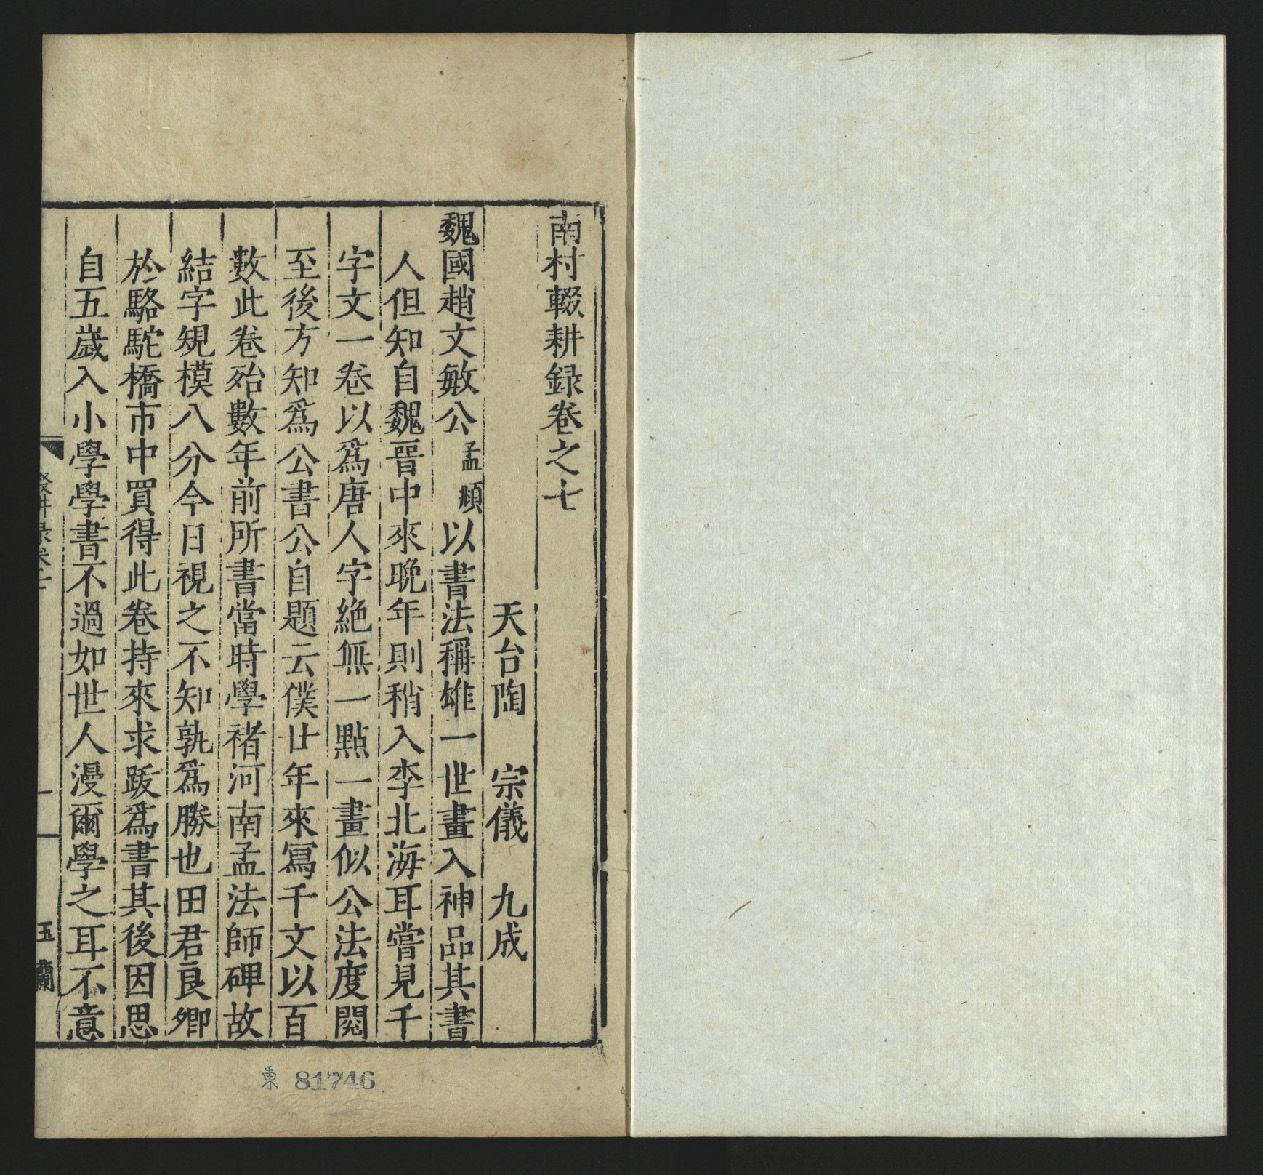 南村輟耕録卷之七
天台陶　宗儀　九成
魏國趙文敏公孟頫以書法稱雄一世畫入神品其書
人但知自魏晉中來晚年則稍入李北海耳嘗見千
字文一卷以爲唐人字絶無一點一畫似公法度閱
至後方知爲公書公自題云僕廿年來寫千文以百
數此卷殆數年前所書當時學褚河南孟法師碑故
結字規模八分今日視之不知孰爲勝也田君良卿
於駱駝橋市中買得此卷持來求跋爲書其後因思
自五歲入小學學書不過如世人漫爾學之耳不意
一
玉
東 81746